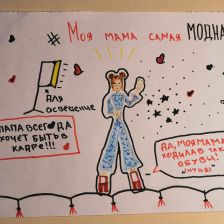 Моя мама самая МОДНА
для
освещение
ПАПА ВСЕГДА
ХОЧЕТ БЫТЬ В
КАДРЕ!!!
ДА, МОЯ МАМА
ХОДИЛА В ТАК
ОБУВИ!